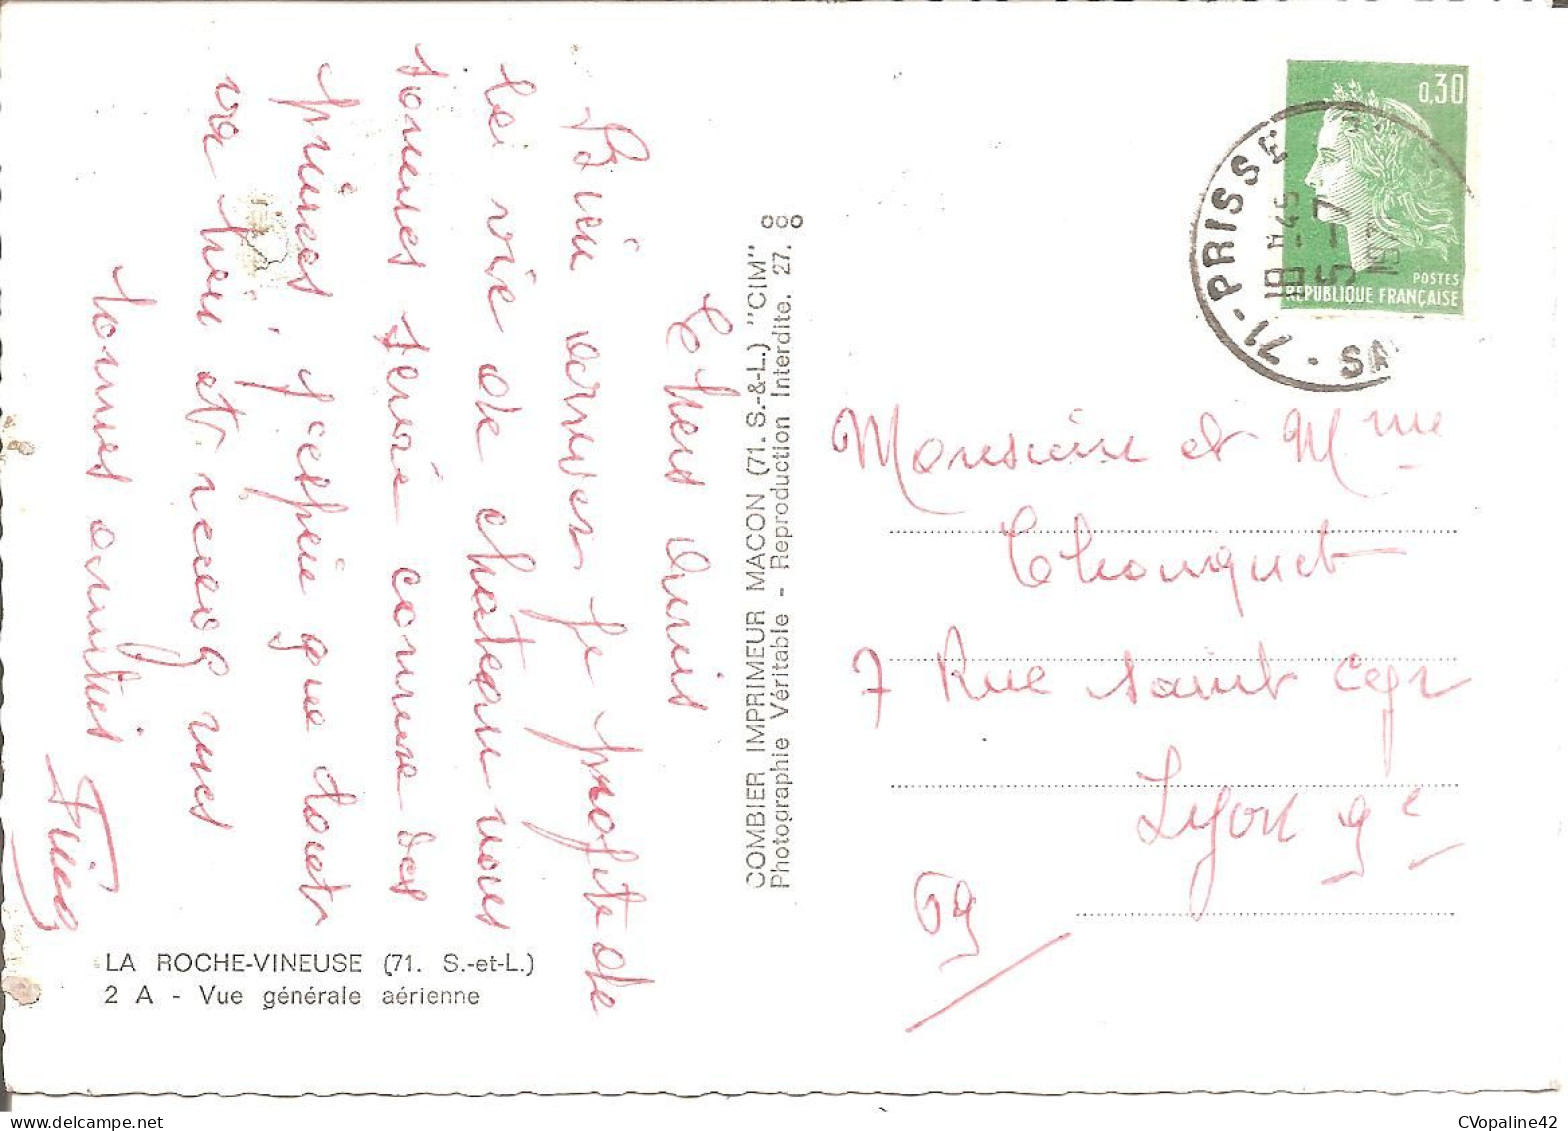 Chers Amis
Bien arrivés je profite de
la vie de château nous
sommes servie comme des
princes, j'espère que tout
va bien et recevez mes
bonnes amitiés
LA ROCHE-VINEUSE (71. S.-et-L.)
2 A - Vue générale aérienne
COMBIER IMPRIMEUR MACON (71. S.-&-L.) "CIM"
Photographie Véritable - Reproduction Interdite. 27.
0,30
POSTES
REPUBLIQUE FRANÇAISE
71 - PRISSE
18 H 45
5 - 7
Monsieur et Mme
Thouquet
7 Rue Saint Cyr
Lyon 9e
69
CVopaline42